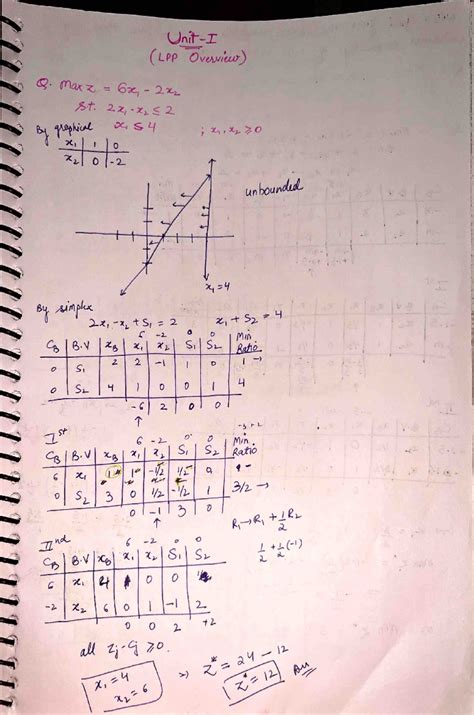 Unit-I
(LPP Overview)
Q. Max z = 6x₁ - 2x₂
st. 2x₁ - x₂ ≤ 2
x₁ ≤ 4 ; x₁, x₂ ≥ 0
By graphical
x₁ | 1 | 0
x₂ | 0 | -2
unbounded
x₁ = 4
By simplex
2x₁ - x₂ + S₁ = 2 x₁ + S₂ = 4
6 -2 0 0
C_B | B.V | x_B | x₁ | x₂ | S₁ | S₂ | Min Ratio
0 | S₁ | 2 | 2 | -1 | 1 | 0 | 1 →
0 | S₂ | 4 | 1 | 0 | 0 | 1 | 4
-6 | 2 | 0 | 0
↑
Ist
6 -2 0 0
C_B | B.V | x_B | x₁ | x₂ | S₁ | S₂ | Min Ratio
6 | x₁ | 1 | 1 | -1/2 | 1/2 | 0 | -
0 | S₂ | 3 | 0 | 1/2 | -1/2 | 1 | 3/2 →
0 | -1 | 3 | 0
↑
R₁ → R₁ + 1/2 R₂
1/2 + 1/2 (-1)
IInd
6 -2 0 0
C_B | B.V | x_B | x₁ | x₂ | S₁ | S₂
6 | x₁ | 4 | 1 | 0 | 0
-2 | x₂ | 6 | 0 | 1 | -1 | 2
0 0 2 +2
all Zj - Cj ≥ 0.
x₁ = 4
x₂ = 6
⇒ Z* = 24 - 12
Z* = 12 Ans